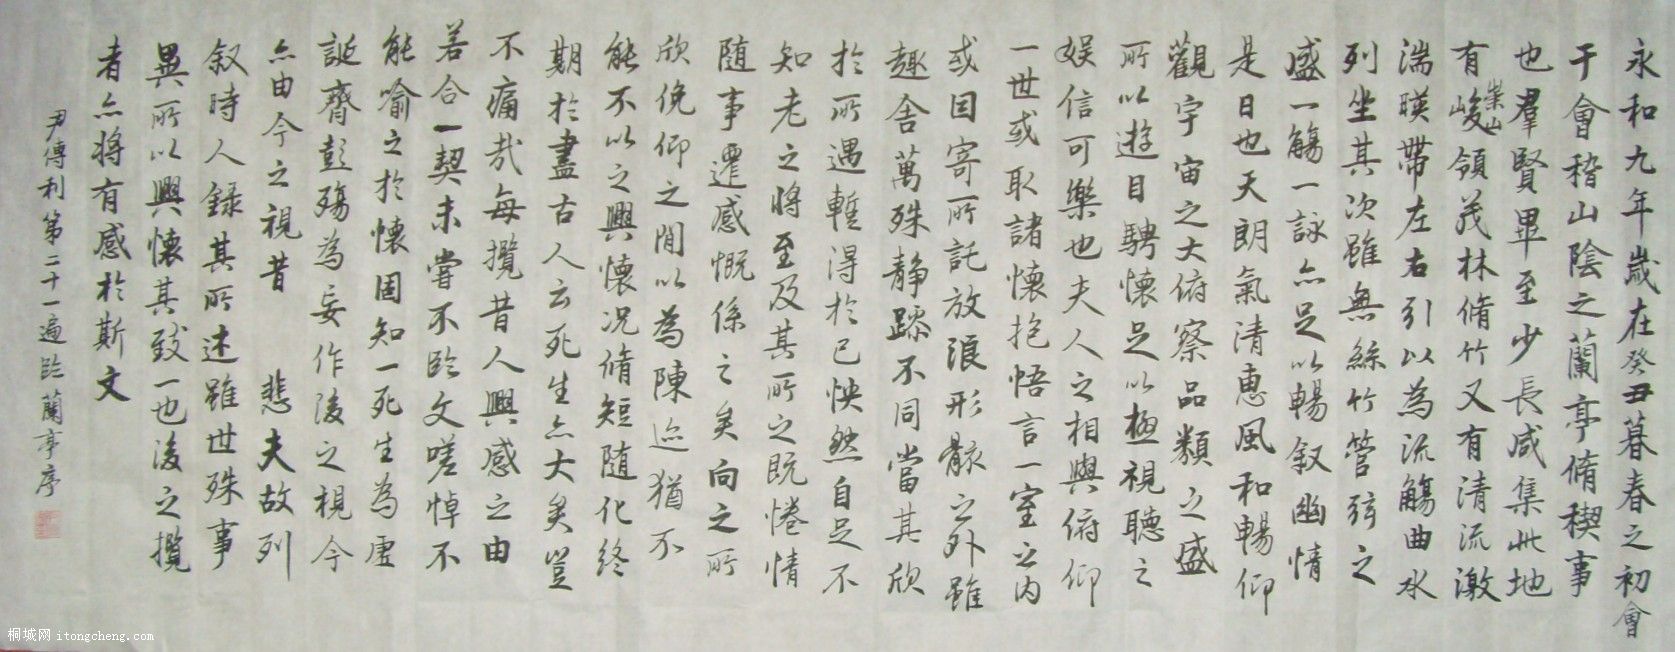 永和九年歲在癸丑暮春之初會
于會稽山陰之蘭亭脩稧事
也羣賢畢至少長咸集此地
有崇山峻領茂林脩竹又有清流激
湍暎帶左右引以為流觴曲水
列坐其次雖無絲竹管弦之
盛一觴一詠亦足以暢叙幽情
是日也天朗氣清惠風和暢仰
觀宇宙之大俯察品類之盛
所以遊目騁懷足以極視聽之
娛信可樂也夫人之相與俯仰
一世或取諸懷抱悟言一室之內
或因寄所託放浪形骸之外雖
趣舍萬殊静躁不同當其欣
於所遇暫得於己怏然自足不
知老之將至及其所之既惓情
隨事遷感慨係之矣向之所
欣俛仰之間以為陳迹猶不
能不以之興懷況脩短隨化終
期於盡古人云死生亦大矣豈
不痛哉每攬昔人興感之由
若合一契未嘗不臨文嗟悼不
能喻之於懷固知一死生為虛
誕齊彭殤為妄作後之視今
亦由今之視昔 悲夫故列
叙時人錄其所述雖世殊事
異所以興懷其致一也後之攬
者亦將有感於斯文
尹傳利第二十一遍臨蘭亭序
桐城网 itongcheng.com